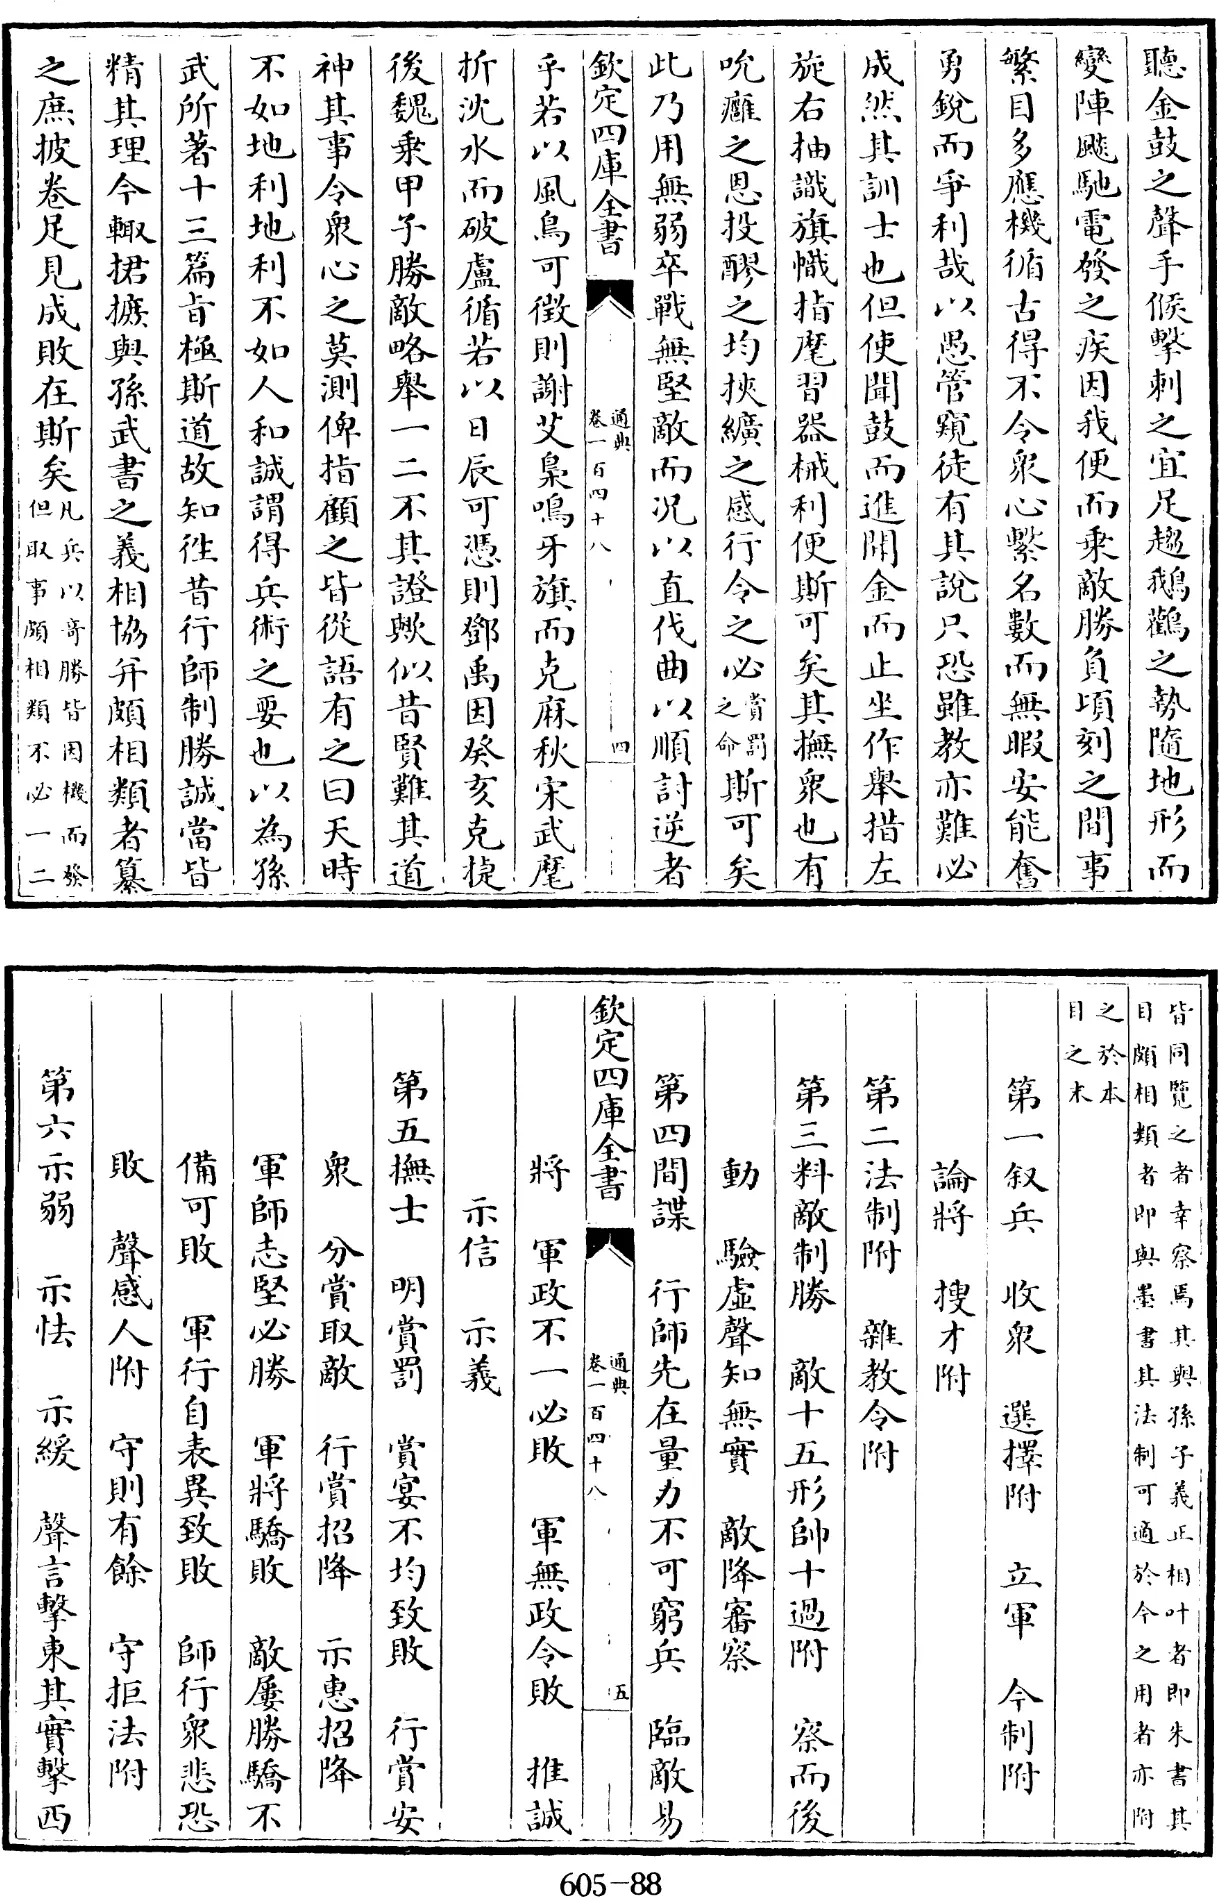 聽金鼓之聲手候擊刺之宜足趨鵝鸛之勢隨地形而
變陣颷馳電發之疾因我便而乘敵勝負頃刻之間事
繁目多應機循古得不令衆心繫名數而無暇安能奮
勇銳而爭利哉以愚管窺徒有其說只恐雖教亦難必
成然其訓士也但使聞鼓而進聞金而止坐作舉措左
旋右抽識旗幟指麾習器械利便斯可矣其撫衆也有
吮癰之恩投醪之均挾纊之感行令之必賞罰之命斯可矣
此乃用無弱卒戰無堅敵而況以直伐曲以順討逆者
欽定四庫全書 通典 卷一百四十八 四
乎若以風鳥可徵則謝艾梟鳴牙旗而克麻秋宋武麾
折沈水而破盧循若以日辰可憑則鄧禹因癸亥克捷
後魏乘甲子勝敵略舉一二不其證歟似昔賢難其道
神其事令衆心之莫測俾指顧之皆從語有之曰天時
不如地利地利不如人和誠謂得兵術之要也以為孫
武所著十三篇旨極斯道故知徃昔行師制勝誠當皆
精其理今輙捃摭與孫武書之義相協并頗相類者纂
之庶披卷足見成敗在斯矣凡兵以奇勝皆因機而發但取事頗相類不必一二
皆同覽之者幸察焉其與孫子義正相叶者即朱書其
目頗相類者即與墨書其法制可適於今之用者亦附
之於本
目之末
第一叙兵 收衆 選擇附 立軍 今制附
論將 搜才附
第二法制附 雜教令附
第三料敵制勝 敵十五形帥十過附 察而後
動 驗虛聲知無實 敵降審察
第四間諜 行師先在量力不可窮兵 臨敵易
欽定四庫全書 通典 卷一百四十八 五
將 軍政不一必敗 軍無政令敗 推誠
示信 示義
第五撫士 明賞罰 賞宴不均致敗 行賞安
衆 分賞取敵 行賞招降 示惠招降
軍師志堅必勝 軍將驕敗 敵屢勝驕不
備可敗 軍行自表異致敗 師行衆悲恐
敗 聲感人附 守則有餘 守拒法附
第六示弱 示怯 示緩 聲言擊東其實擊西
605-88